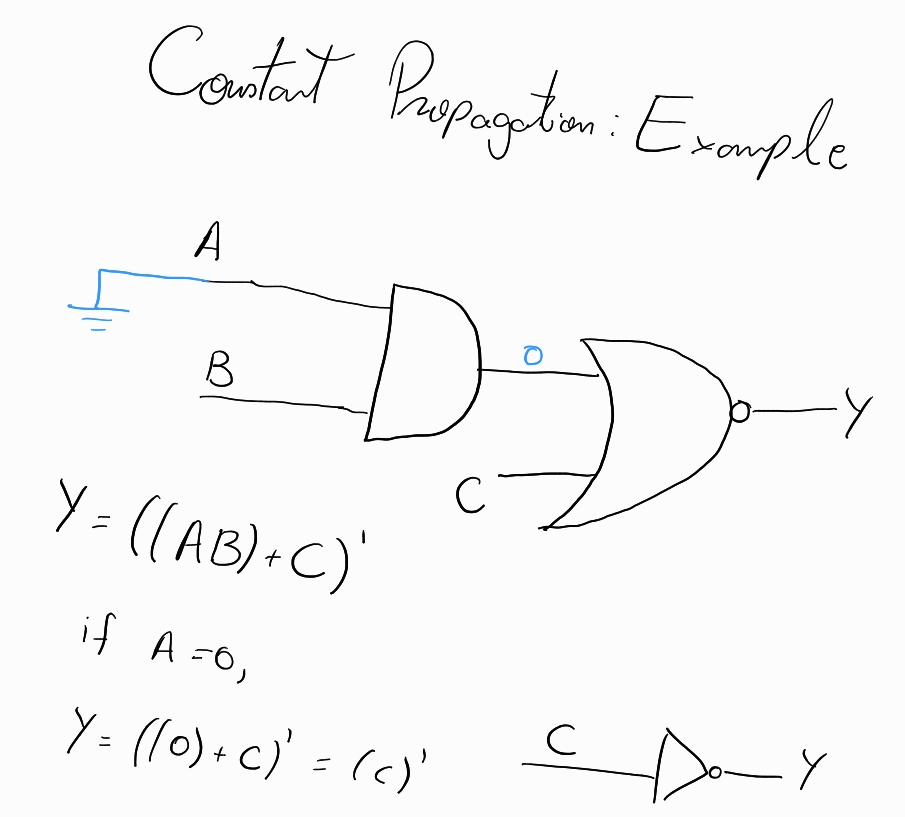 Constant Propagation: Example
A
B
0
Y
C
Y = ((AB)+C)'
if A=0,
Y = ((0)+C)' = (C)'
C
Y